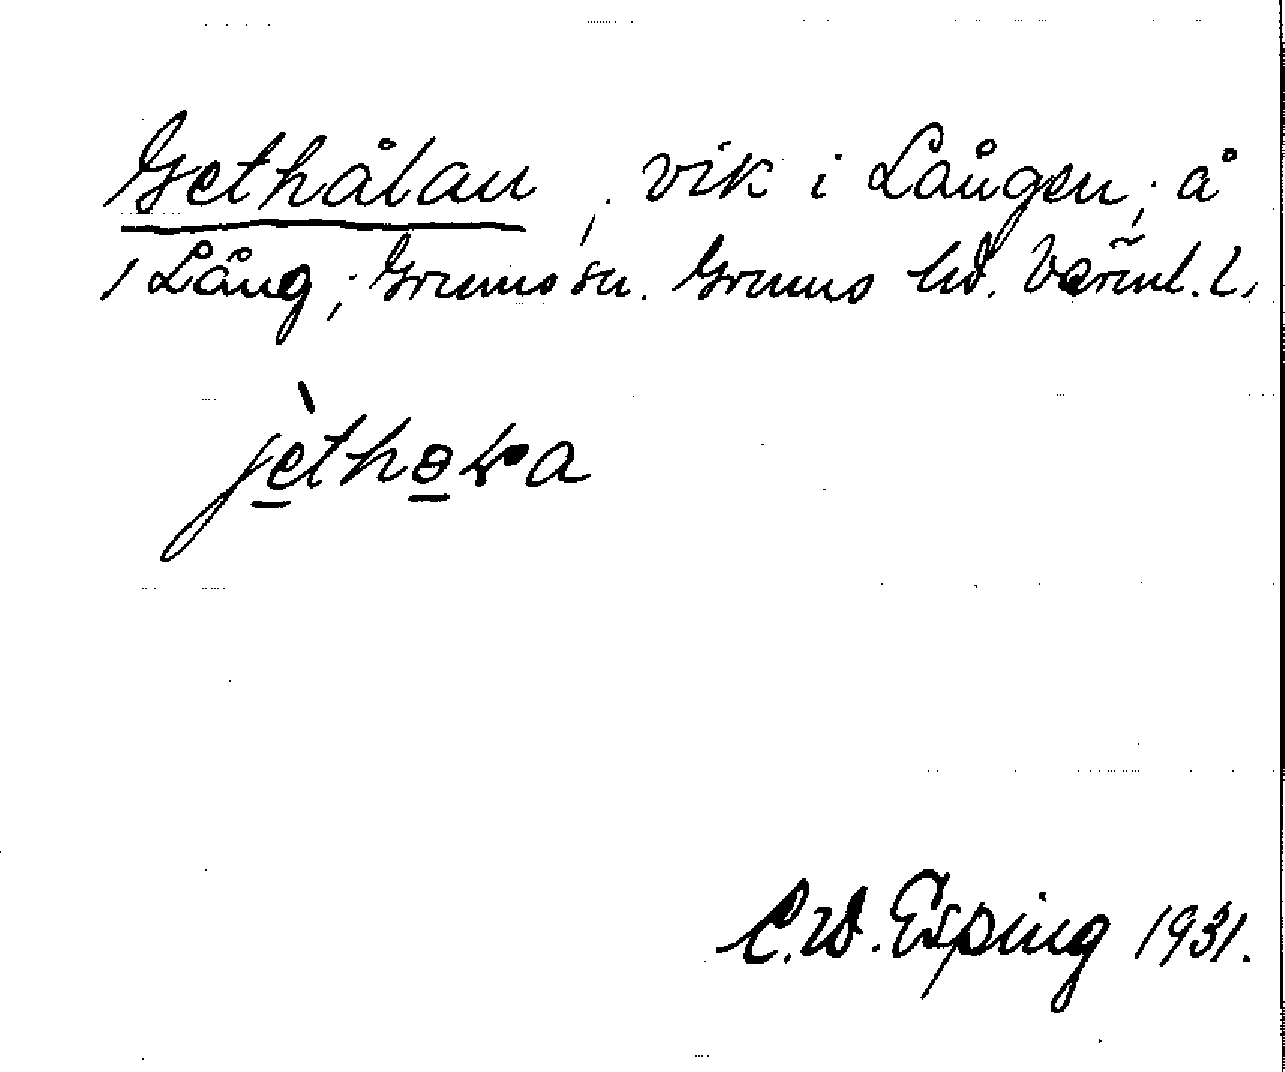 Gethålan, vik i Lången, å
i Lång, Grums sn. Grums hd. Värml. l.
jèthɵɽa
C.W. Esping 1931.